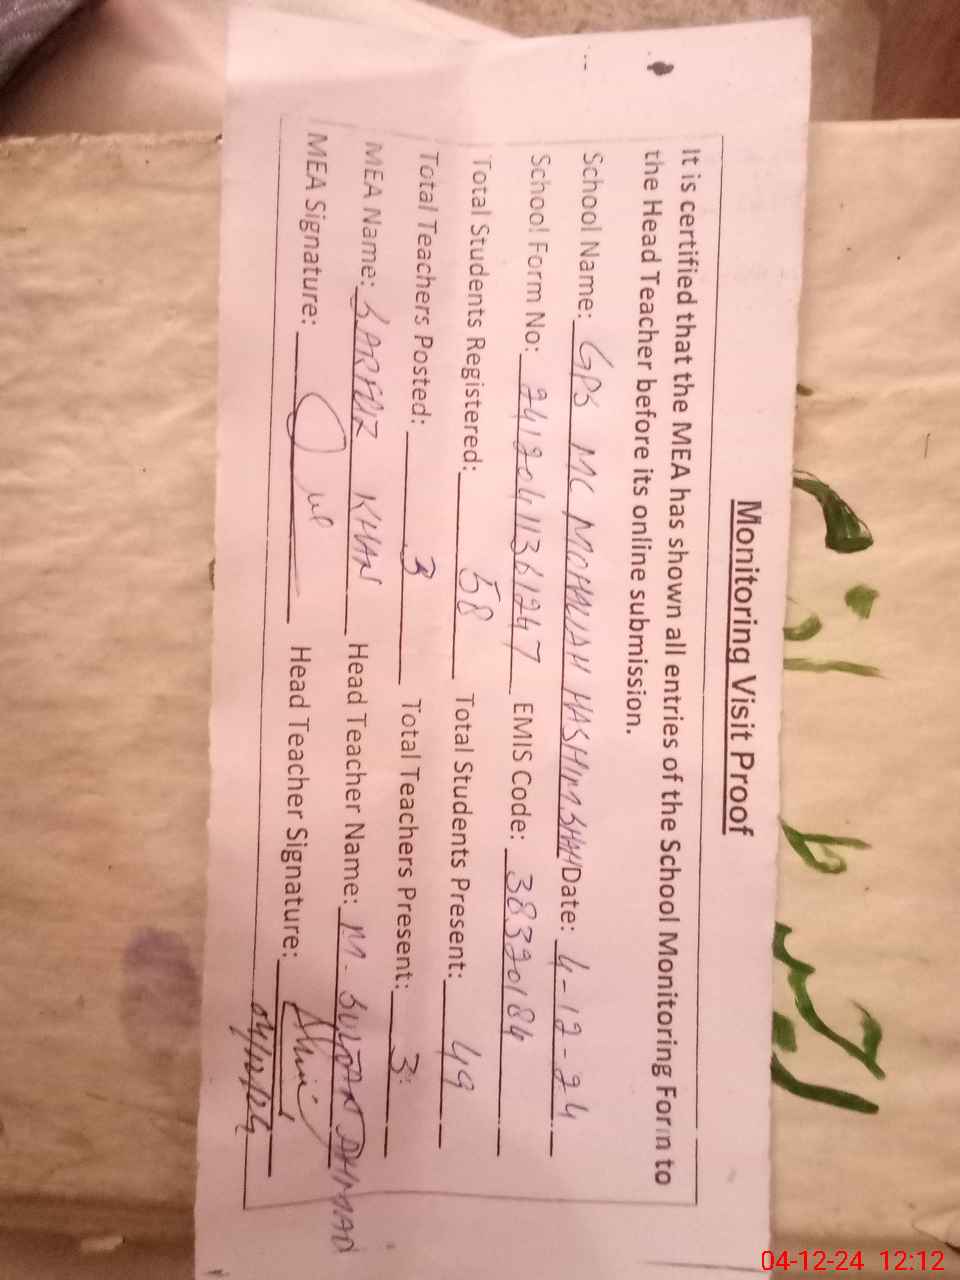 Monitoring Visit Proof
It is certified that the MEA has shown all entries of the School Monitoring Form to
the Head Teacher before its online submission.
School Name: GPS MC MOHALLAH HASHIM SHAH Date: 4-12-24
School Form No: 24120411361247 EMIS Code: 38320184
Total Students Registered: 58 Total Students Present: 49
Total Teachers Posted: 3 Total Teachers Present: 3
MEA Name: SARFRAZ KHAN Head Teacher Name: M. SULTAN AHMAD
MEA Signature: Head Teacher Signature:
04/12/24
04-12-24 12:12